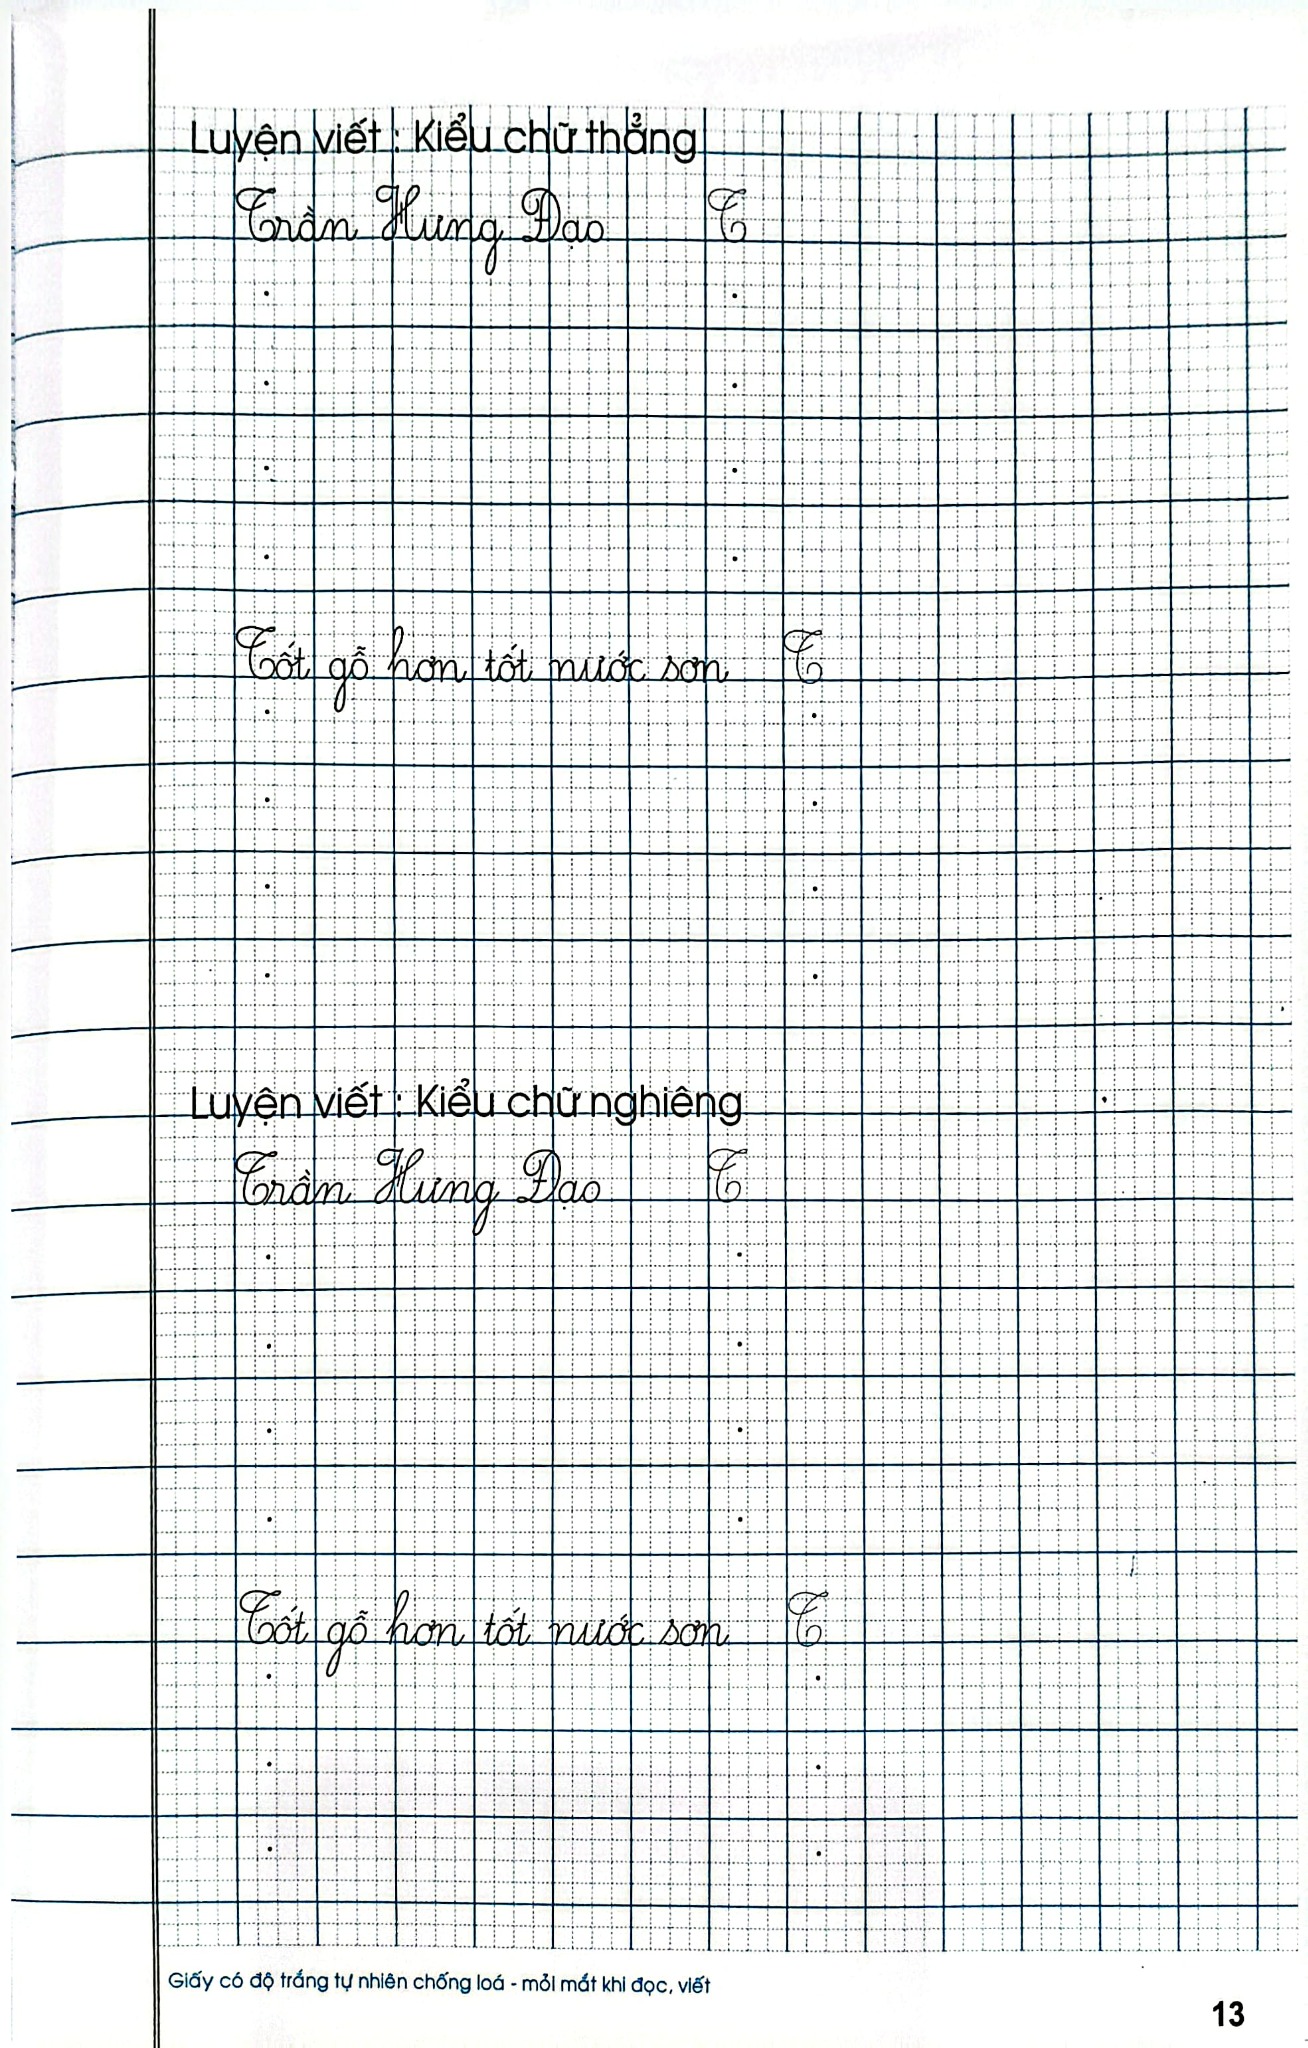 Luyện viết : Kiểu chữ thẳng
Trần Hưng Đạo T
Tốt gỗ hơn tốt nước sơn T
Luyện viết : Kiểu chữ nghiêng
Trần Hưng Đạo T
Tốt gỗ hơn tốt nước sơn T
Giấy có độ trắng tự nhiên chống loá - mỏi mắt khi đọc, viết
13